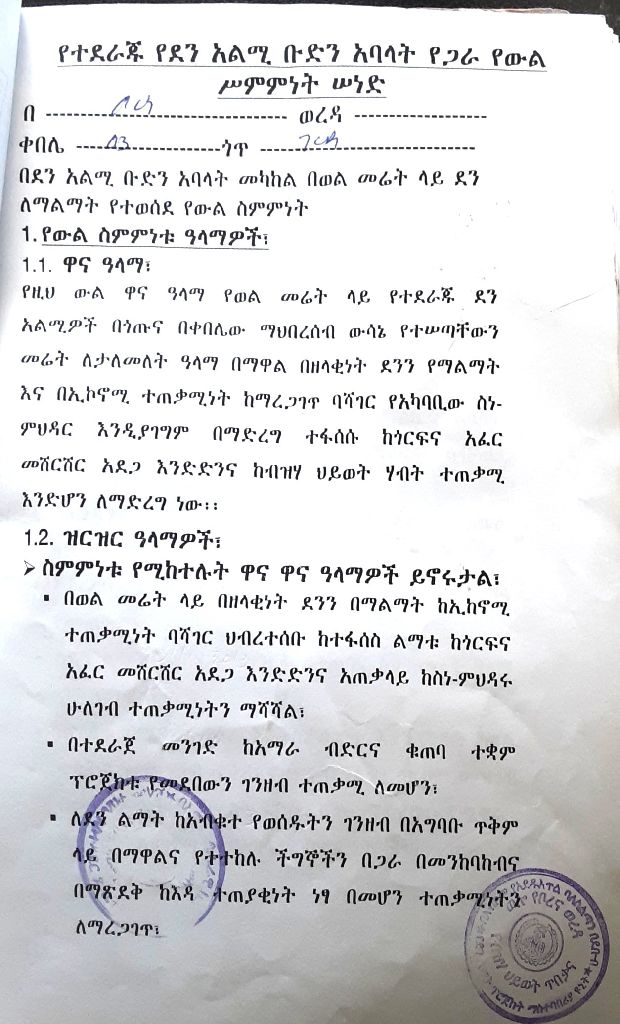 የተደራጁ የደን አልሚ ቡድን አባላት የጋራ የውል
ሥምምነት ሠነድ
በ ------------------------------- ወረዳ -----------------
ቀበሌ --- 03 ------------ጎጥ ---------------------------
በደን አልሚ ቡድን አባላት መካከል በወል መሬት ላይ ደን
ለማልማት የተወሰደ የውል ስምምነት
1. የውል ስምምነቱ ዓላማዎች፣
1.1. ዋና ዓላማ፣
የዚህ ውል ዋና ዓላማ የወል መሬት ላይ የተደራጁ ደን
አልሚዎች በጎጡና በቀበሌው ማህበረሰብ ውሳኔ የተሠጣቸውን
መሬት ለታለመለት ዓላማ በማዋል በዘላቂነት ደንን የማልማት
እና በኢኮኖሚ ተጠቃሚነት ከማረጋገጥ ባሻገር የአካባቢው ስነ-
ምህዳር እንዲያገግም በማድረግ ተፋሰሱ ከጎርፍና አፈር
መሸርሸር አደጋ እንድድንና ከብዝሃ ህይወት ሃብት ተጠቃሚ
እንድሆን ለማድረግ ነው፡፡
1.2. ዝርዝር ዓላማዎች፣
➢ ስምምነቱ የሚከተሉት ዋና ዋና ዓላማዎች ይኖሩታል፣
▪ በወል መሬት ላይ በዘላቂነት ደንን በማልማት ከኢከኖሚ
ተጠቃሚነት ባሻገር ህብረተሰቡ ከተፋሰስ ልማቱ ከጎርፍና
አፈር መሸርሸር አደጋ እንድድንና አጠቃላይ ከስነ-ምህዳሩ
ሁለገብ ተጠቃሚነትን ማሻሻል፣
▪ በተደራጀ መንገድ ከአማራ ብድርና ቁጠባ ተቋም
ፕሮጀክቱ የመደበውን ገንዘብ ተጠቃሚ ለመሆን፣
▪ ለደን ልማት ከአብቁተ የወሰዱትን ገንዘብ በአግባቡ ጥቅም
ላይ በማዋልና የተተከሉ ችግኞችን በጋራ በመንከባከብና
በማጽደቅ ከእዳ ተጠያቂነት ነፃ በመሆን ተጠቃሚነትን
ለማረጋገጥ፣